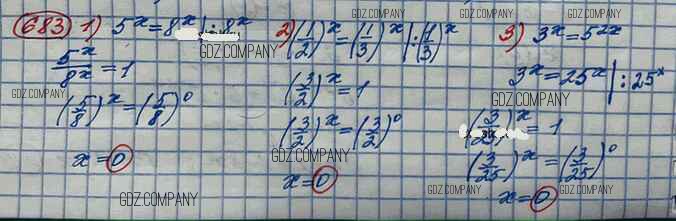 683 1) 5^x = 8^x | : 8^x
5^x/8^x = 1
(5/8)^x = (5/8)^0
x = 0
2) (1/2)^x = (1/3)^x | : (1/3)^x
(3/2)^x = 1
(3/2)^x = (3/2)^0
x = 0
3) 3^x = 5^2x
3^x = 25^x | : 25^x
(3/25)^x = 1
(3/25)^x = (3/25)^0
x = 0
GDZ.COMPANY
GDZ.COMPANY
GDZ.COMPANY
GDZ.COMPANY
GDZ.COMPANY
GDZ.COMPANY
GDZ.COMPANY
GDZ.COMPANY
GDZ.COMPANY
GDZ.COMPANY
GDZ.COMPANY